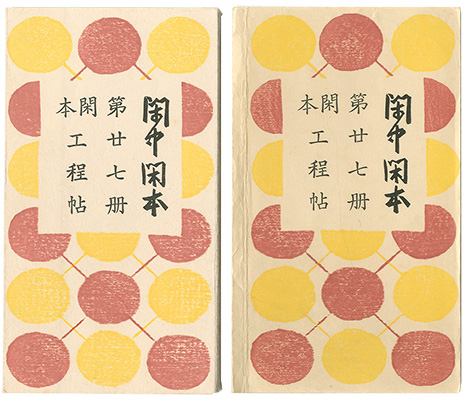 閑中閑本
第廿七册
閑本
工程帖
閑中閑本
第廿七册
閑本
工程帖